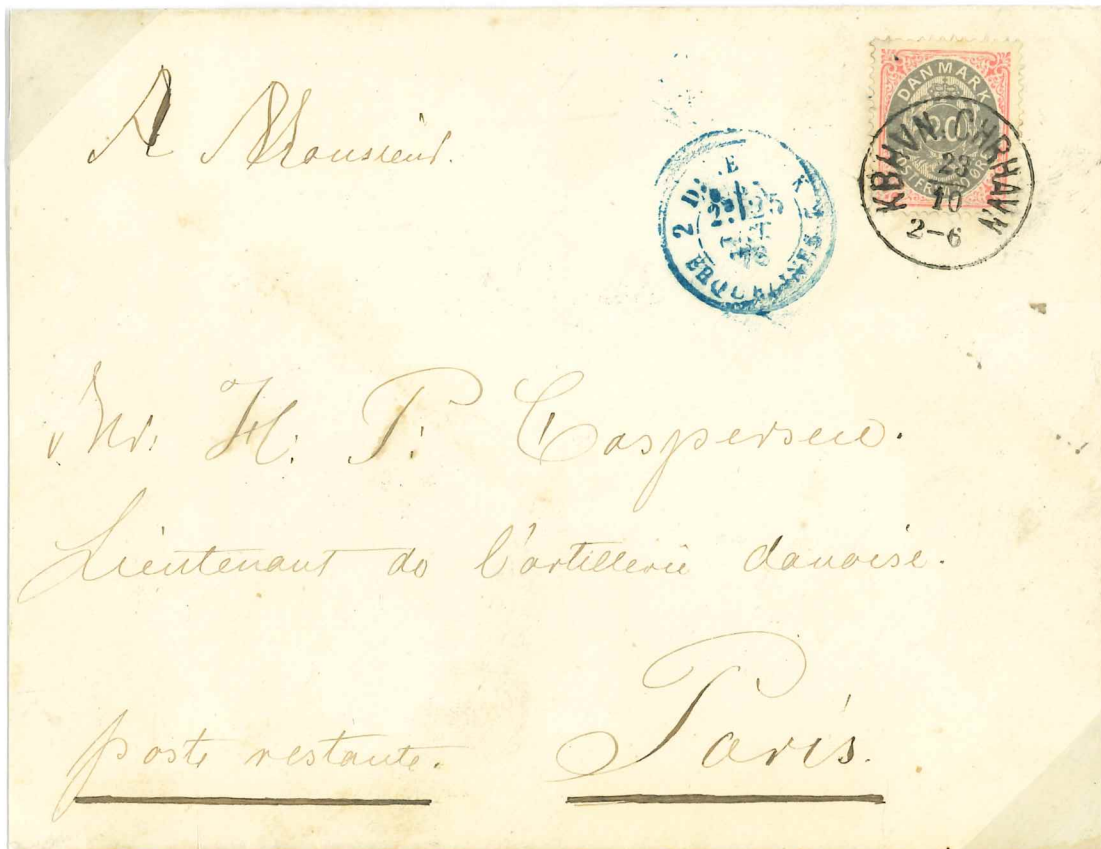 A Monsieur.
DANMARK
20
POSTFRIM. ØRE
KBHVN. CHRHAVN
23
10
2-6
2
25
OCT
78
ERQUELINES
Mr: H. P. Caspersen.
Lieutenant de l'artillerie danoise.
poste restante. Paris.